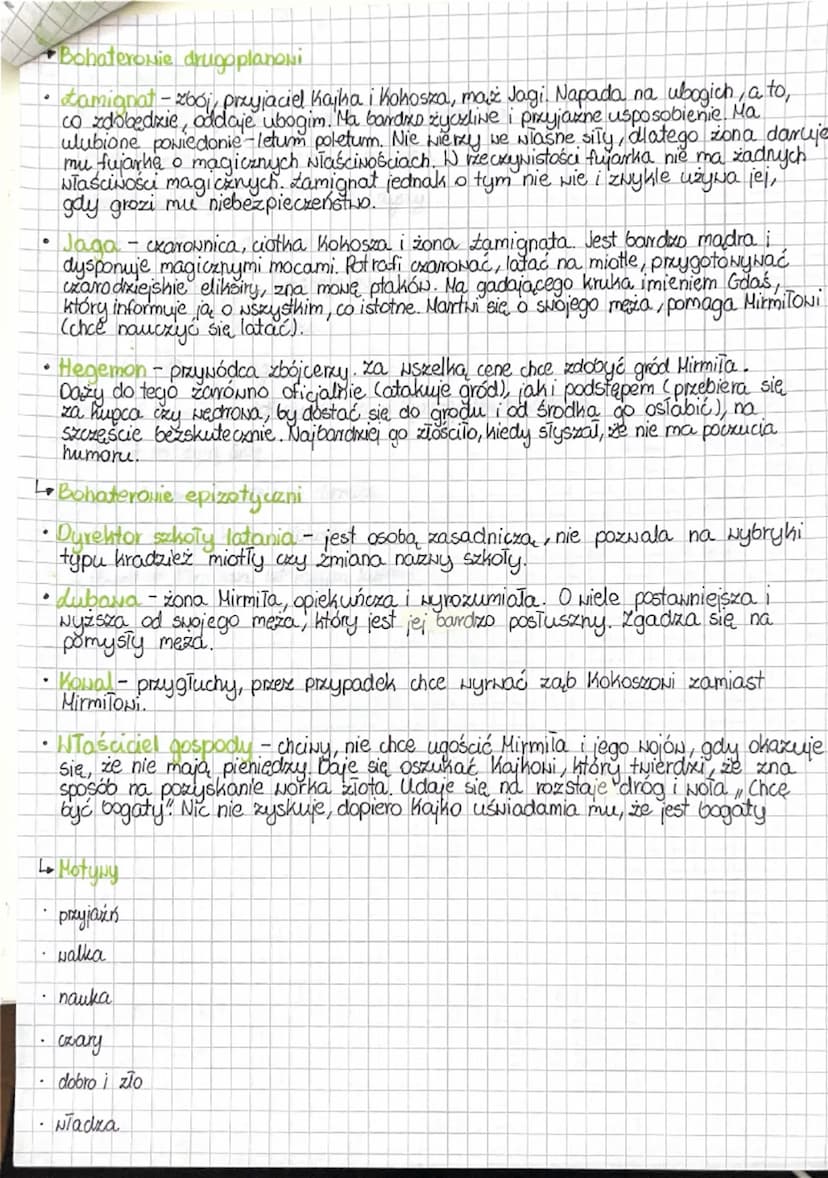 Bohaterowie drugoplanowi
• Łamignat - zbój, przyjaciel Kajka i Kokosza, mąż Jagi. Napada na ubogich, a to,
co zdobędzie, oddaje ubogim. Ma bardzo życzliwe i przyjazne usposobienie. Ma
ulubione powiedonie - letum poletum. Nie wierzy we własne siły, dlatego żona daruje
mu fujarkę o magicznych właściwościach. W rzeczywistości fujarka nie ma żadnych
właściwości magicznych. Łamignat jednak o tym nie wie i zwykle używa jej,
gdy grozi mu niebezpieczeństwo.
• Jaga - czarownica, ciotka Kokosza i żona Łamignata. Jest bardzo mądra i
dysponuje magicznymi mocami. Potrafi czarować, latać na miotle, przygotowywać
czarodziejskie eliksiry, zna mowę ptaków. Ma gadającego kruka imieniem Gdaś,
który informuje ją o wszystkim, co istotne. Martwi się o swojego męża, pomaga Mirmiłowi
(chce nauczyć się latać).
• Hegemon - przywódca zbójcerzy. Za wszelką cene chce zdobyć gród Mirmiła.
Dąży do tego zarówno oficjalnie (atakuje gród), jak i podstępem (przebiera się
za kupca czy wędrowa, by dostać się do grodu i od środka go osłabić), na
szczęście bezskutecznie. Najbardziej go złościło, kiedy słyszał, że nie ma poczucia
humoru.
↳ Bohaterowie epizotyczni
• Dyrektor szkoły latania - jest osobą zasadniczą, nie pozwala na wybryki
typu kradzież miotły czy zmiana nazwy szkoły.
• Lubawa - żona Mirmiła, opiekuńcza i wyrozumiała. O wiele postawniejsza i
wyższa od swojego męża, który jest jej bardzo posłuszny. Zgadza się na
pomysły męża.
• Kowal - przygłuchy, przez przypadek chce wyrwać ząb Kokoszowi zamiast
Mirmiłowi.
• Właściciel gospody - chciwy, nie chce ugościć Mirmiła i jego wojów, gdy okazuje
się, że nie mają pieniędzy. Daje się oszukać Kajkowi, który twierdzi, że zna
sposób na pozyskanie worka złota. Udaje się na rozstaje dróg i woła „Chcę
być bogaty". Nic nie zyskuje, dopiero Kajko uświadamia mu, że jest bogaty
↳ Motywy
• przyjaźń
• walka
• nauka
• czary
• dobro i zło
• władza